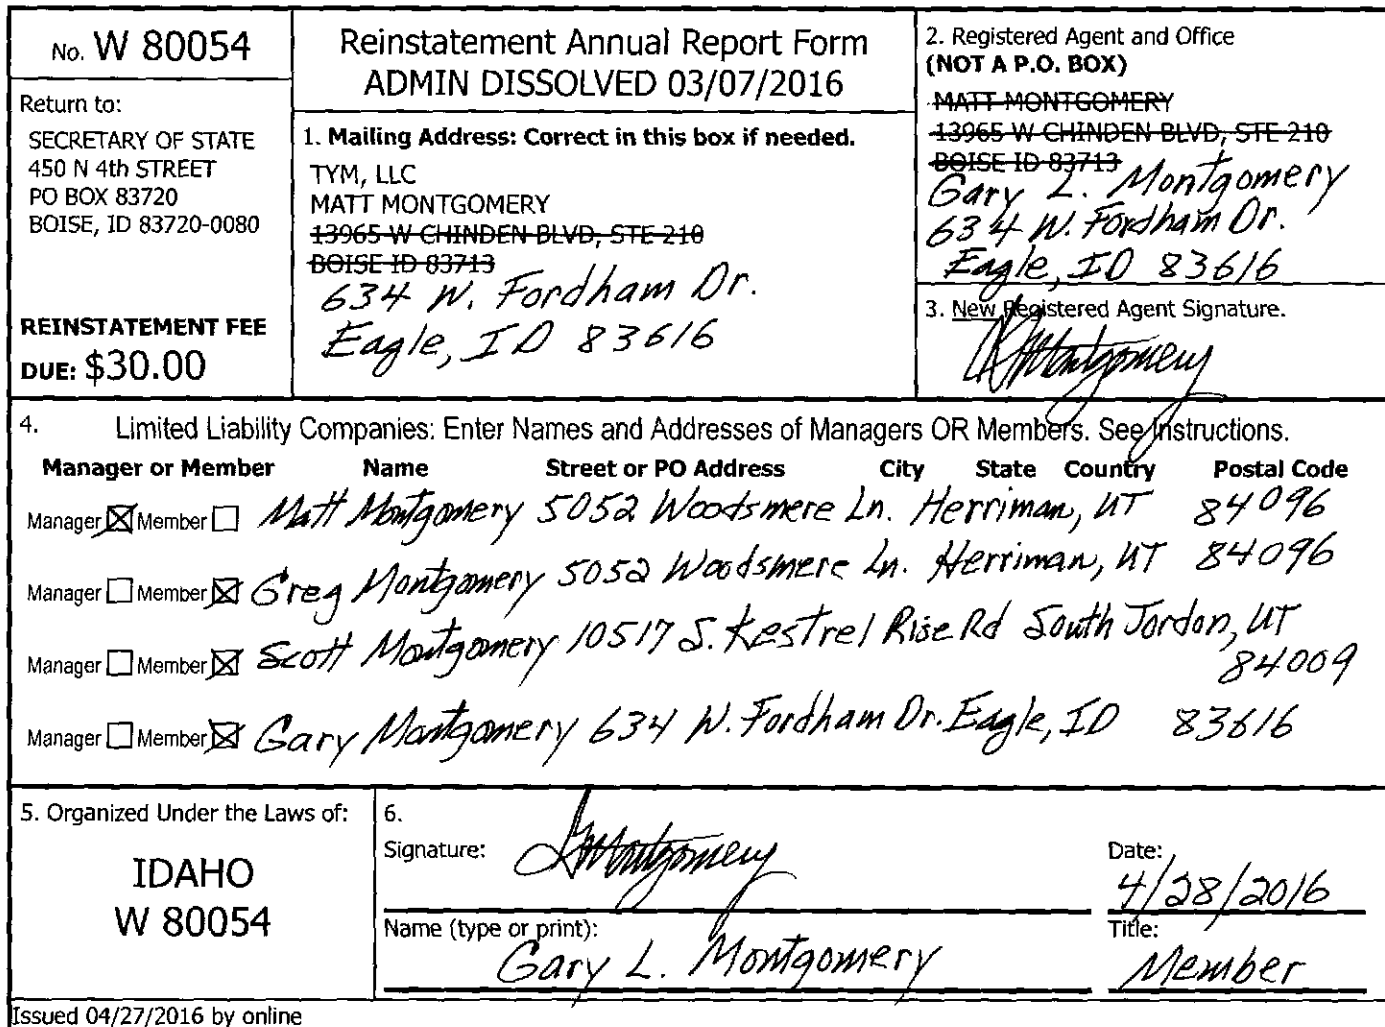 No. W 80054
Return to:
SECRETARY OF STATE
450 N 4th STREET
PO BOX 83720
BOISE, ID 83720-0080
REINSTATEMENT FEE
DUE: $30.00
Reinstatement Annual Report Form
ADMIN DISSOLVED 03/07/2016
1. Mailing Address: Correct in this box if needed.
TYM, LLC
MATT MONTGOMERY
13965 W CHINDEN BLVD, STE 210
BOISE ID 83713
634 W. Fordham Dr.
Eagle, ID 83616
2. Registered Agent and Office
(NOT A P.O. BOX)
MATT MONTGOMERY
13965 W CHINDEN BLVD, STE 210
BOISE ID 83713
Gary L. Montgomery
634 W. Fordham Dr.
Eagle, ID 83616
3. New Registered Agent Signature.
GMontgomery
4. Limited Liability Companies: Enter Names and Addresses of Managers OR Members. See Instructions.
Manager or Member Name Street or PO Address City State Country Postal Code
Manager ☒ Member ☐ Matt Montgomery 5052 Woodsmere Ln. Herriman, UT 84096
Manager ☐ Member ☒ Greg Montgomery 5052 Woodsmere Ln. Herriman, UT 84096
Manager ☐ Member ☒ Scott Montgomery 10517 S. Kestrel Rise Rd South Jordan, UT
84009
Manager ☐ Member ☒ Gary Montgomery 634 W. Fordham Dr. Eagle, ID 83616
5. Organized Under the Laws of:
IDAHO
W 80054
6.
Signature: GMontgomery
Date: 4/28/2016
Name (type or print): Gary L. Montgomery
Title: Member
Issued 04/27/2016 by online